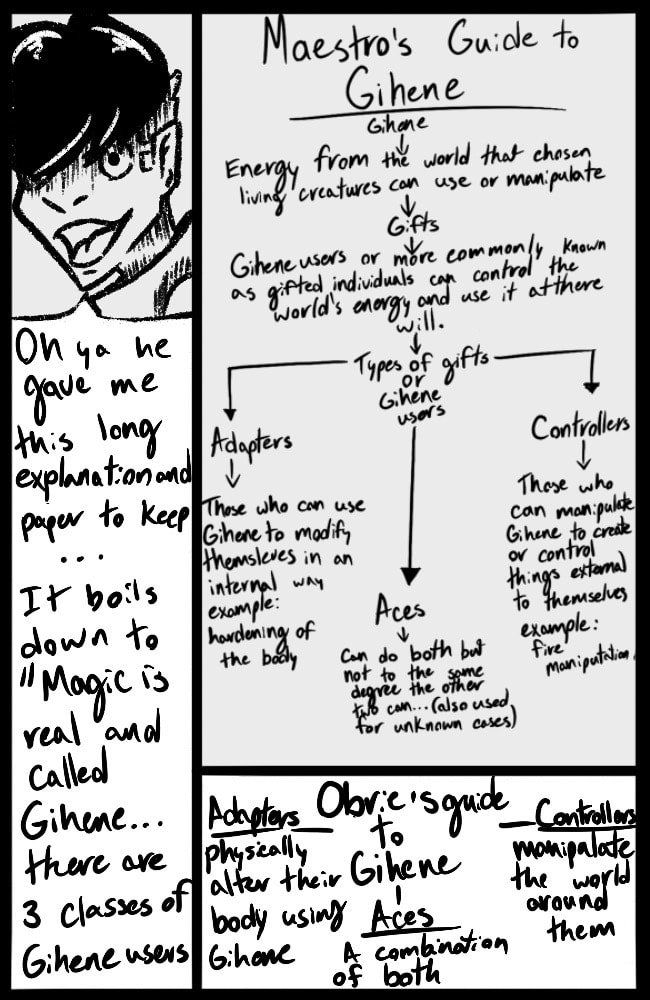 Oh ya he
gave me
this long
explanation and
paper to keep
...
It boils
down to
"Magic is
real and
called
Gihene...
there are
3 classes of
Gihene users
Maestro's Guide to
Gihene
Gihene
Energy from the world that chosen
living creatures can use or manipulate
Gifts
Gihene users or more commonly known
as gifted individuals can control the
world's energy and use it at there
will.
Types of gifts
or
Gihene
users
Adapters
Those who can use
Gihene to modify
themsleves in an
internal way
example:
hardening of
the body
Aces
Can do both but
not to the same
degree the other
two can... (also used
for unknown cases)
Controllers
Those who
can manipulate
Gihene to create
or control
things external
to themselves
example:
fire
manipulation.
Obrie's guide
to
Gihene
Adapters
physically
alter their
body using
Gihene
Aces
A combination
of both
Controllers
manipalate
the world
around
them